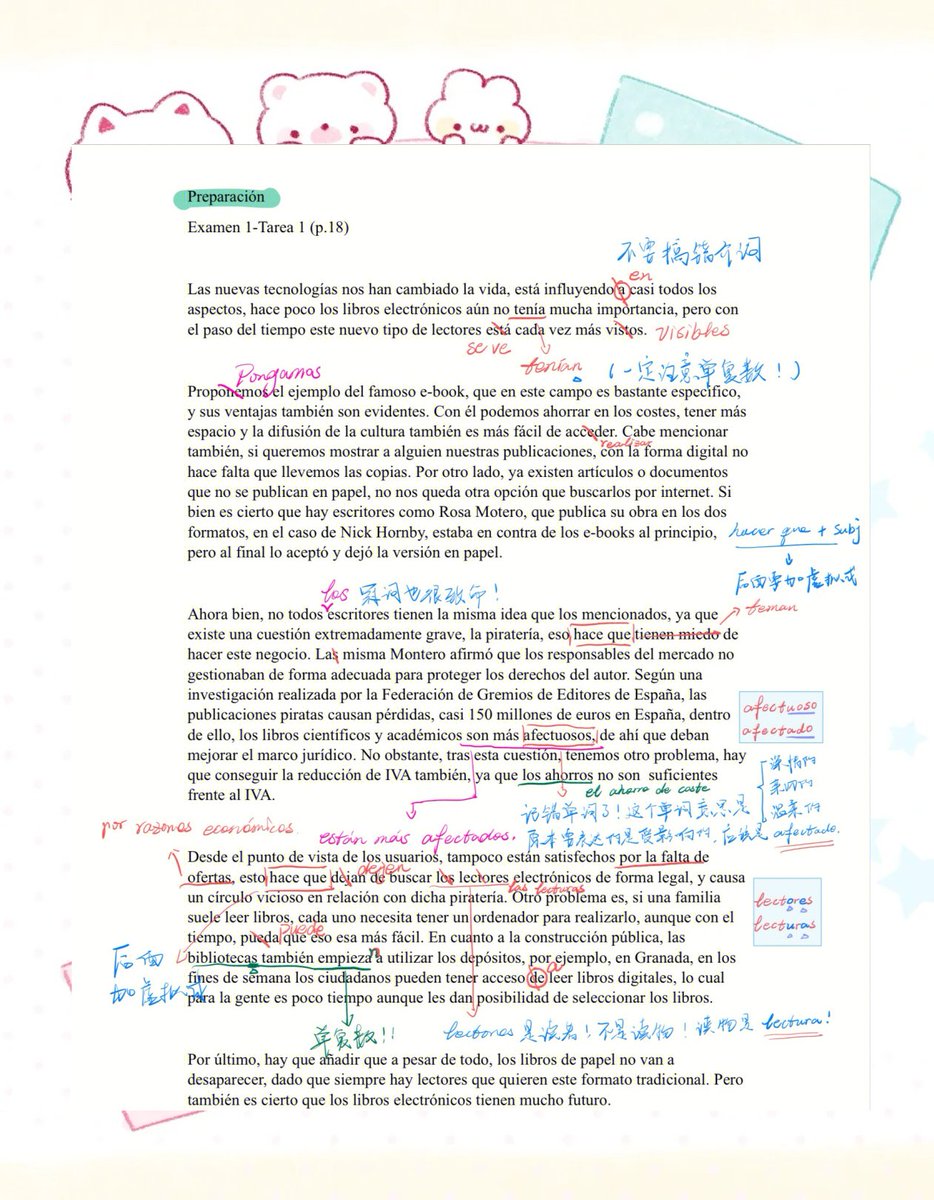 Preparación
Examen 1-Tarea 1 (p.18)
不要搞错介词
en
Las nuevas tecnologías nos han cambiado la vida, está influyendo a casi todos los
aspectos, hace poco los libros electrónicos aún no tenía mucha importancia, pero con
el paso del tiempo este nuevo tipo de lectores está cada vez más vistos. visibles
se ve
tenían
(一定注意单复数！)
Pongamos
Proponemos el ejemplo del famoso e-book, que en este campo es bastante específico,
y sus ventajas también son evidentes. Con él podemos ahorrar en los costes, tener más
espacio y la difusión de la cultura también es más fácil de acceder. Cabe mencionar
realizar
también, si queremos mostrar a alguien nuestras publicaciones, con la forma digital no
hace falta que llevemos las copias. Por otro lado, ya existen artículos o documentos
que no se publican en papel, no nos queda otra opción que buscarlos por internet. Si
bien es cierto que hay escritores como Rosa Motero, que publica su obra en los dos
formatos, en el caso de Nick Hornby, estaba en contra de los e-books al principio,
pero al final lo aceptó y dejó la versión en papel.
hacer que + subj
后面要加虚拟式
los 冠词也很致命！
Ahora bien, no todos escritores tienen la misma idea que los mencionados, ya que
teman
existe una cuestión extremadamente grave, la piratería, eso hace que tienen miedo de
hacer este negocio. Las misma Montero afirmó que los responsables del mercado no
gestionaban de forma adecuada para proteger los derechos del autor. Según una
investigación realizada por la Federación de Gremios de Editores de España, las
publicaciones piratas causan pérdidas, casi 150 millones de euros en España, dentro
de ello, los libros científicos y académicos son más afectuosos, de ahí que deban
mejorar el marco jurídico. No obstante, tras esta cuestión, tenemos otro problema, hay
que conseguir la reducción de IVA también, ya que los ahorros no son suficientes
frente al IVA.
afectuoso
afectado
el ahorro de coste
深情的
亲切的
温柔的
记错单词了！这个单词意思是
原本要表达的是受影响的，应该是 afectado.
están más afectados.
por razones económicos.
Desde el punto de vista de los usuarios, tampoco están satisfechos por la falta de
dejen
ofertas, esto hace que dejan de buscar los lectores electrónicos de forma legal, y causa
las lecturas
un círculo vicioso en relación con dicha piratería. Otro problema es, si una familia
suele leer libros, cada uno necesita tener un ordenador para realizarlo, aunque con el
puede
tiempo, pueda que eso esa más fácil. En cuanto a la construcción pública, las
n
bibliotecas también empieza a utilizar los depósitos, por ejemplo, en Granada, en los
a
fines de semana los ciudadanos pueden tener acceso de leer libros digitales, lo cual
para la gente es poco tiempo aunque les dan posibilidad de seleccionar los libros.
lectores
lecturas
后面
加虚拟式
单复数!!
lectores 是读者！不是读物！读物是 lectura!
Por último, hay que añadir que a pesar de todo, los libros de papel no van a
desaparecer, dado que siempre hay lectores que quieren este formato tradicional. Pero
también es cierto que los libros electrónicos tienen mucho futuro.